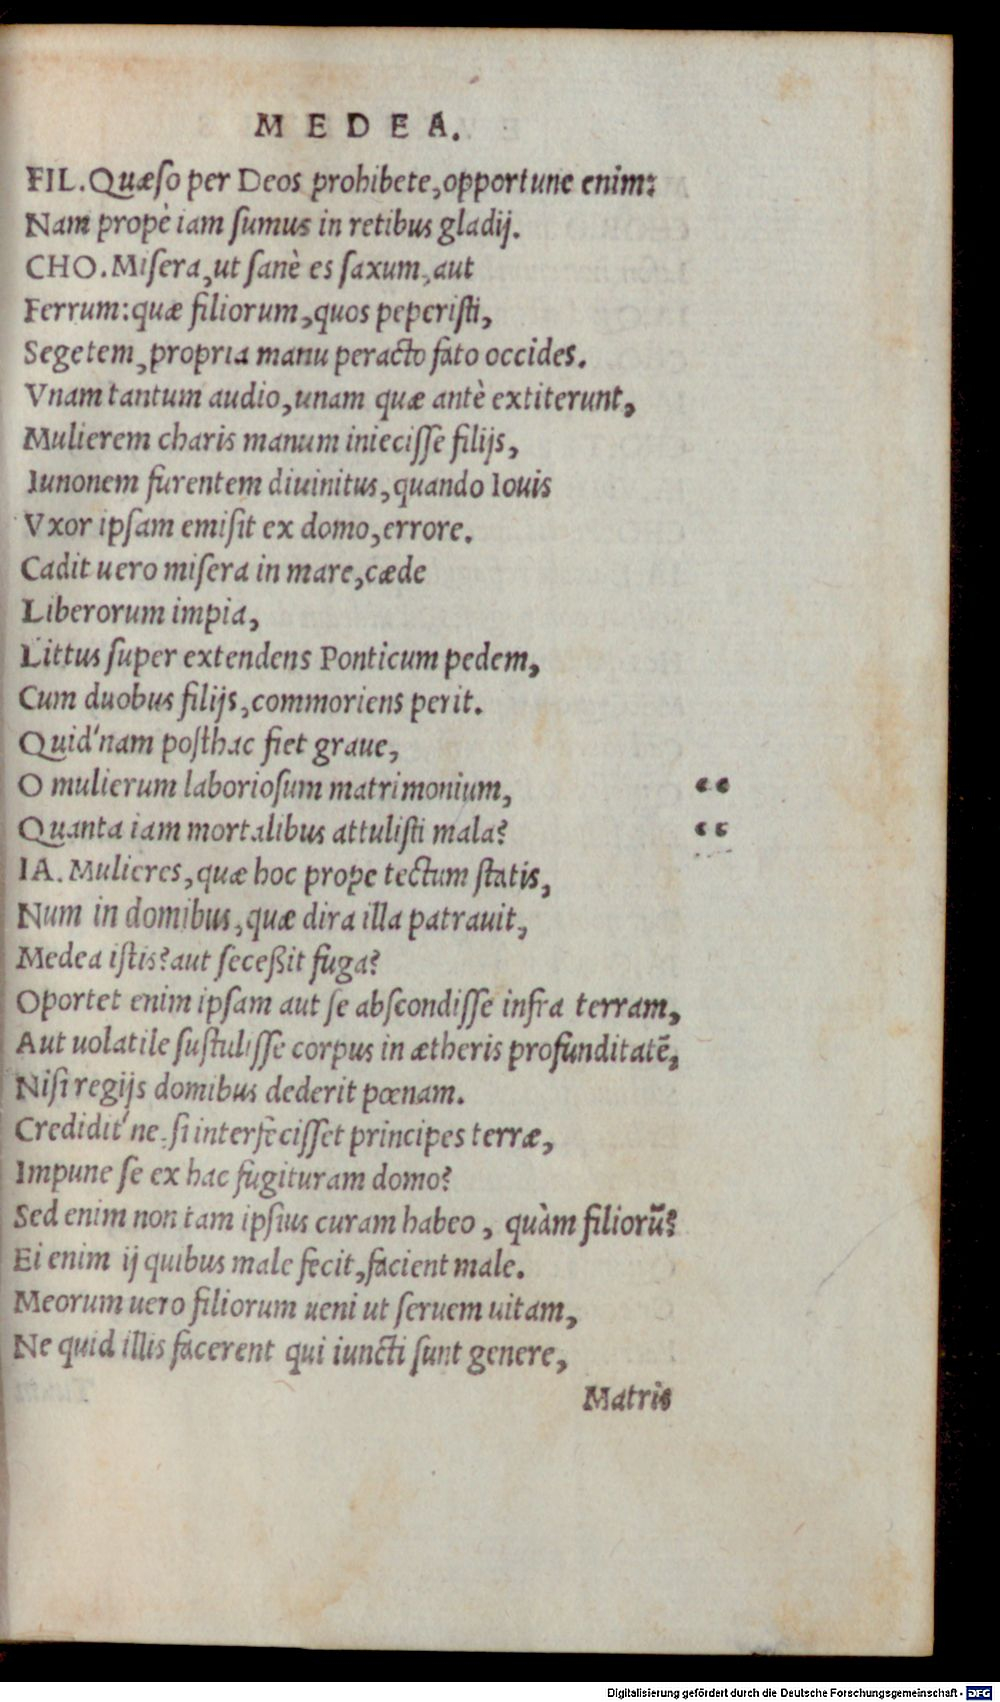 MEDEA.
FIL. Quæſo per Deos prohibete, opportune enim:
Nam propè iam ſumus in retibus gladij.
CHO. Miſera, ut ſanè es ſaxum, aut
Ferrum: quæ filiorum, quos peperiſti,
Segetem, propria manu peracto fato occides.
Vnam tantum audio, unam quæ antè extiterunt,
Mulierem charis manum inieciſſe filijs,
Iunonem furentem diuinitus, quando Iouis
Vxor ipſam emiſit ex domo, errore.
Cadit uero miſera in mare, cæde
Liberorum impia,
Littus ſuper extendens Ponticum pedem,
Cum duobus filijs, commoriens perit.
Quid'nam poſthac fiet graue,
O mulierum laborioſum matrimonium, “
Quanta iam mortalibus attuliſti mala? “
IA. Mulieres, quæ hoc prope tectum ſtatis,
Num in domibus, quæ dira illa patrauit,
Medea iſtis? aut ſeceßit fuga?
Oportet enim ipſam aut ſe abſcondiſſe infra terram,
Aut uolatile ſuſtuliſſe corpus in ætheris profunditatē,
Niſi regijs domibus dederit pœnam.
Credidit'ne ſi interfeciſſet principes terræ,
Impune ſe ex hac fugituram domo?
Sed enim non tam ipſius curam habeo, quàm filiorū?
Ei enim ij quibus male fecit, facient male.
Meorum uero filiorum ueni ut ſeruem uitam,
Ne quid illis facerent qui iuncti ſunt genere,
Matris
Digitalisierung gefördert durch die Deutsche Forschungsgemeinschaft - DFG